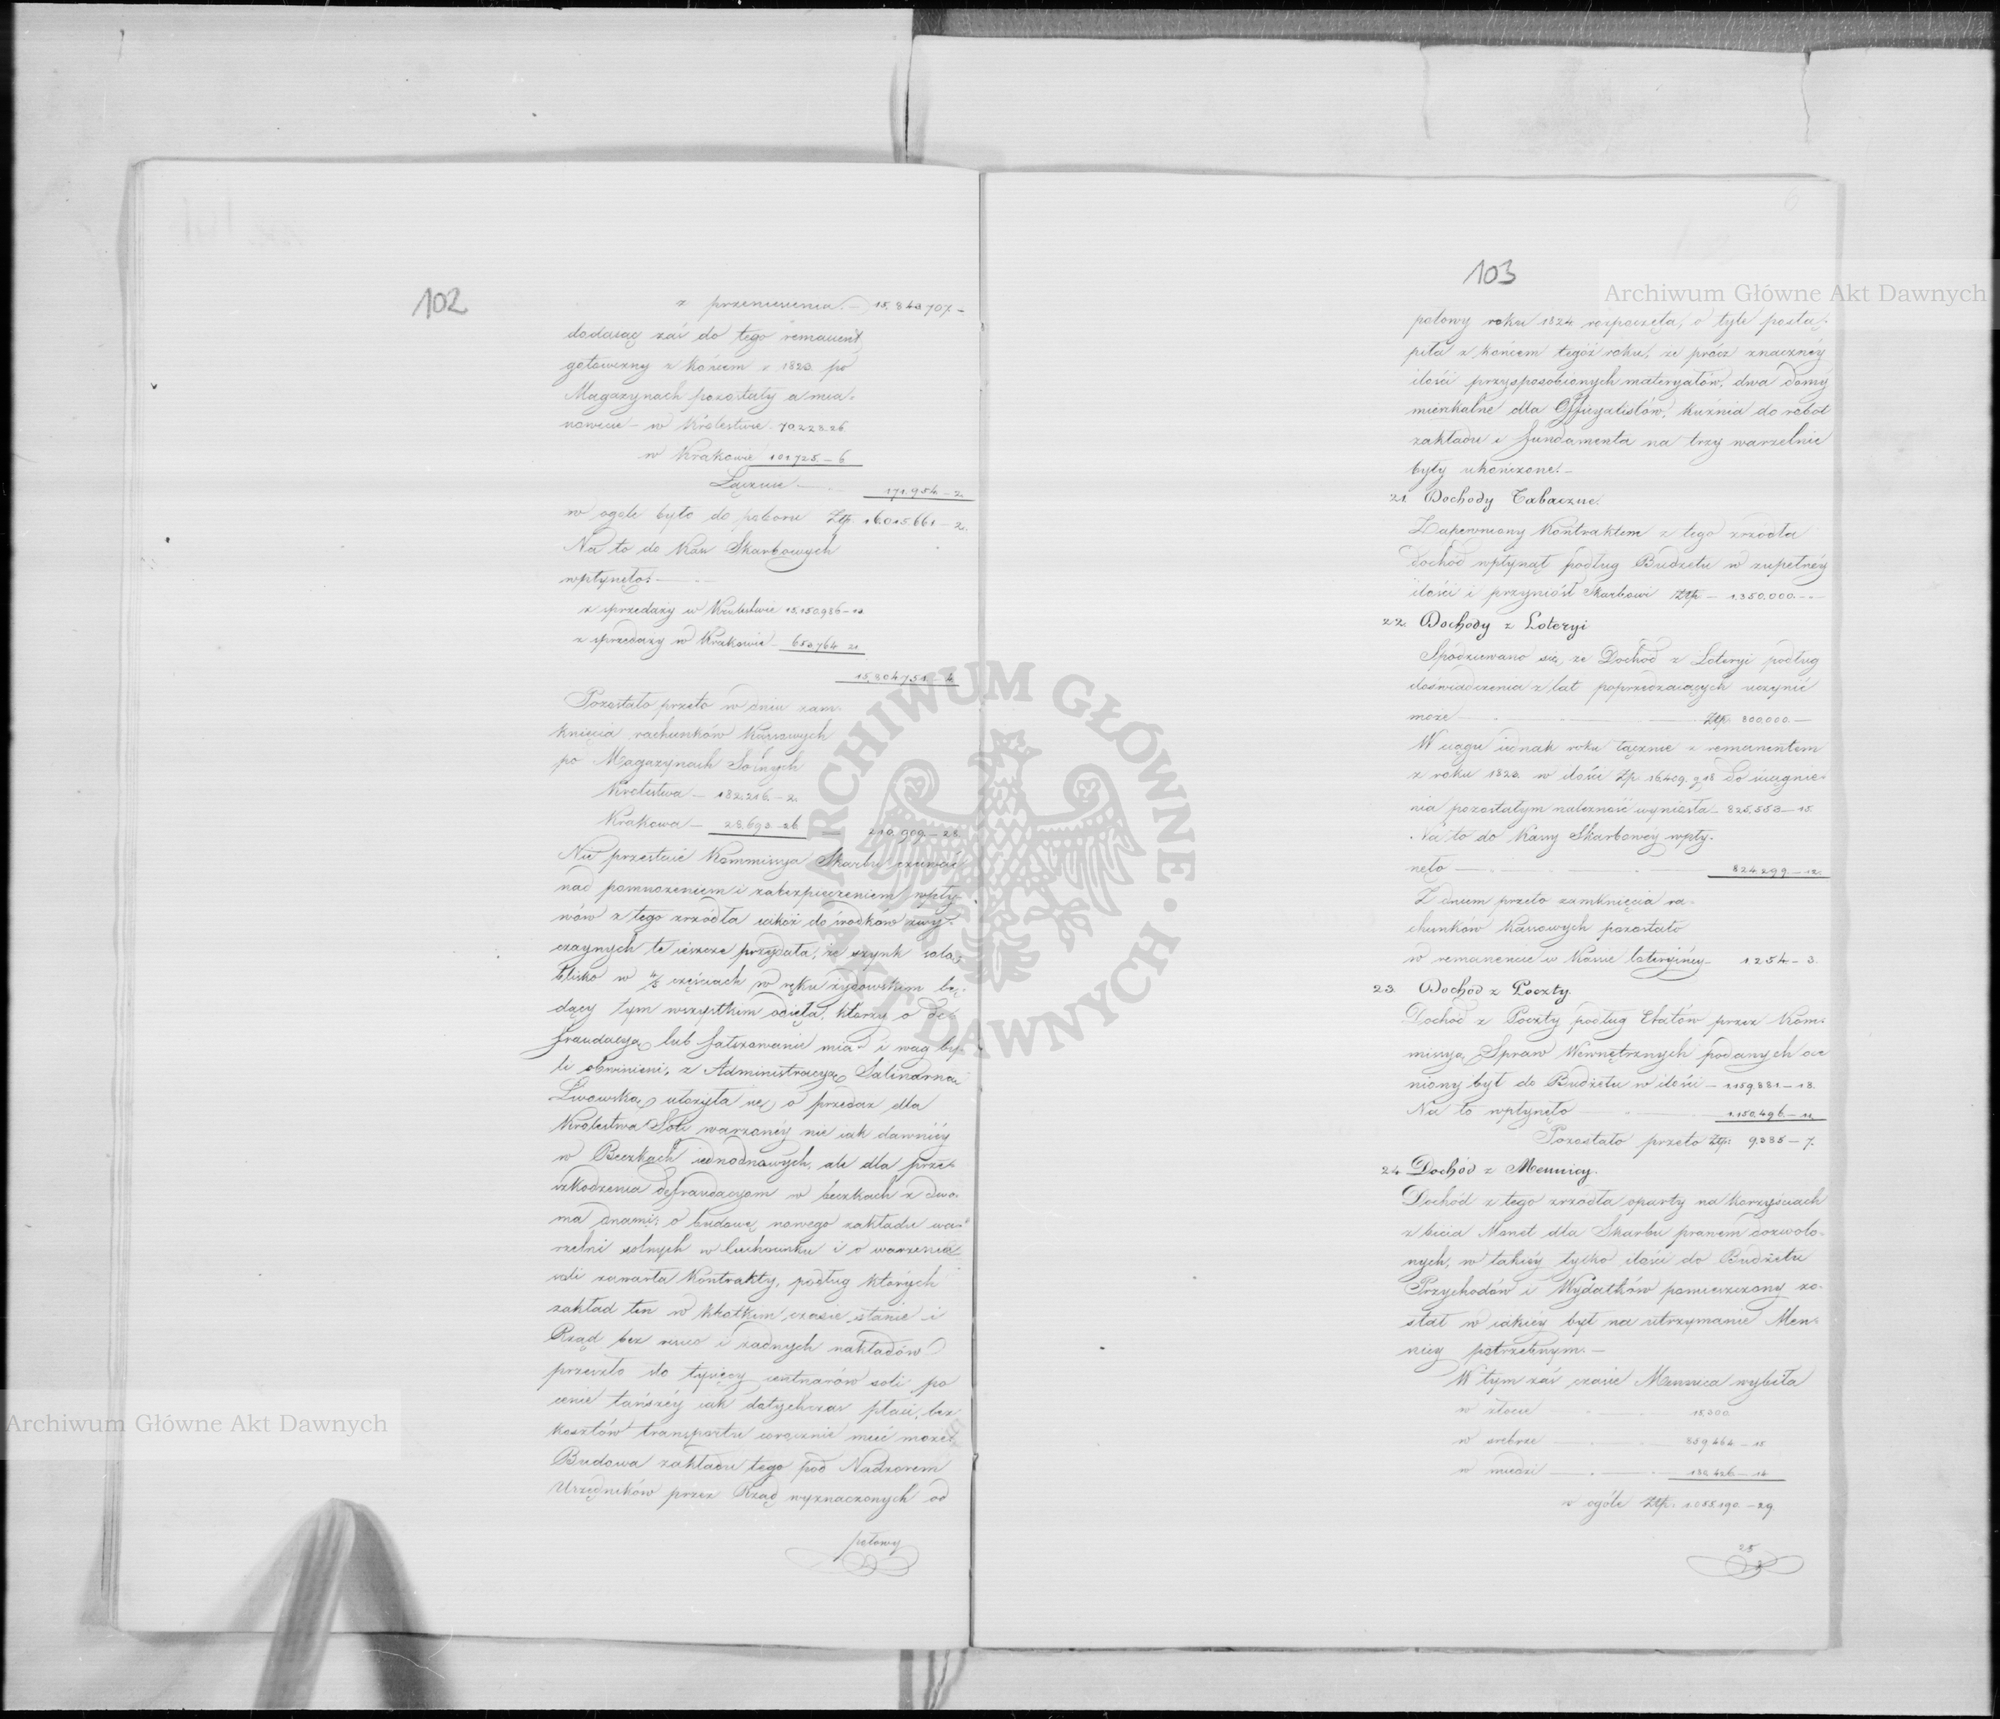 102
z przeniesienia. — 15.843707 —
dodaiąc zaś do tego remanent
gotowizny z końcem r. 1823 po
Magazynach pozostały a mia-
nowicie — w Królestwie 70.228.26
w Krakowie 101725 — 6
Łącznie — 171.954. — 2.
w ogóle było do poboru Złp. 16.015.661 — 2.
Na to do Kass Skarbowych
wpłynęło: —
z sprzedaży w Królestwie 15.150.986 — 13
z sprzedaży w Krakowie 653.764 21
15.804.751. — 4
Pozostało przeto w dniu zam-
knięcia rachunków Kassowych
po Magazynach Solnych
Królestwa — 182.216. — 2.
Krakowa — 28.693 — 26 210.909. — 28
Nie przestaie Kommissya Skarbu czuwać
nad pomnożeniem i zabezpieczeniem wpły-
wów z tego zrzódła iakoż do środków zwy-
czaynych te ieszcze przydała, że szynk soli
blisko w 4/5 częściach w ręku żydowskim bę-
dący tym wszystkim odięła, którzy o de-
fraudacyą lub fałszowanie miar i wag by-
li obwinieni, z Administracyą Salinarną
Lwowską ułożyła się o przedaż dla
Królestwa Soli warzonéy nie iak dawniéy
w Beczkach iednodnowych, ale dla prze-
szkodzenia defraudacyom w beczkach z dwo-
ma dnami; o budowę nowego zakładu wa-
rzelni solnych w Ciechocinku i o warzenie
soli zawarła Kontrakty, podług których
zakład ten w krótkim czasie stanie i
Rząd bez risico i żadnych nakładów
przeszło sto tysięcy centnarów soli po
cenie tańszéy iak dotychczas płaci, bez
kosztów transportu corocznie mieć może.
Budowa zakładu tego pod Nadzorem
Urzędników przez Rząd wyznaczonych od
połowy
103
połowy roku 1824 rozpoczęta, o tyle postą-
piła z końcem tegóż roku, że prócz znacznéy
ilości przysposobionych materyałów, dwa domy
mieszkalne dla Officyalistów, kuźnia do robót
zakładu i fundamenta na trzy warzelnie
były ukończone. —
21. Dochody Tabaczne.
Zapewniony Kontraktem z tego zrzodła
dochód wpłynął podług Budżetu w zupełnéy
ilości i przyniósł Skarbowi Złp — 1.350.000. —
22. Dochody z Loteryi
Spodziewano się, że Dochód z Loteryi podług
doświadczenia z lat poprzedzaiących uczynić
może — Złp. 800.000. —
W ciągu iednak roku łącznie z remanentem
z roku 1823. w ilości Złp. 16.409. g 18 do ściągnie-
nia pozostałym należność wyniosła — 825.553 — 15.
Na to do Kassy Skarbowéy wpły-
nęło — 824.299. — 12.
Z dniem przeto zamknięcia ra-
chunków Kassowych pozostało
w remanencie w Kassie loteryinéy — 1254 — 3.
23. Dochód z Poczty.
Dochód z Poczty podług Etatów przez Kom-
missyą Spraw Wewnętrznych podanych oce-
niony był do Budżetu w ilości — 1.159.881 — 18.
Na to wpłynęło — 1.150.496. — 11
Pozostało przeto Złp. 9.385 — 7.
24 Dochód z Mennicy.
Dochód z tego zrzodła oparty na korzyściach
z bicia Monet dla Skarbu prawem dozwolo-
nych, w takiéy tylko ilości do Budżetu
Przychodów i Wydatków pomieszczony zo-
stał w iakiéy był na utrzymanie Men-
nicy potrzebnym. —
W tym zaś czasie Mennica wybiła
w złocie — 15.300.
w srebrze — 859.464 — 15
w miedzi — 180.426 — 14
w ogóle Złp. 1.055.190. — 29.
25
Archiwum Główne Akt Dawnych
Archiwum Główne Akt Dawnych
ARCHIWUM GŁÓWNE AKT DAWNYCH